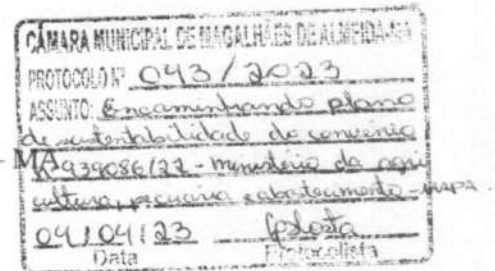 CÂMARA MUNICIPAL DE MAGALHÃES DE ALMEIDA-MA
PROTOCOLO Nº 043 / 2023
ASSUNTO: Encaminhando plano
de sustentabilidade do convenio
- MA
939086/22 - ministério da agri
cultura, pecuaria e abastecimento - MAPA.
04 / 04 / 23
Data Protocolista